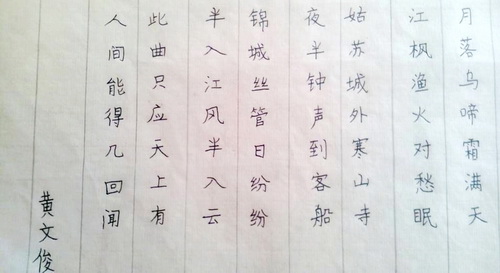 月落乌啼霜满天
江枫渔火对愁眠
姑苏城外寒山寺
夜半钟声到客船
锦城丝管日纷纷
半入江风半入云
此曲只应天上有
人间能得几回闻
黄文俊